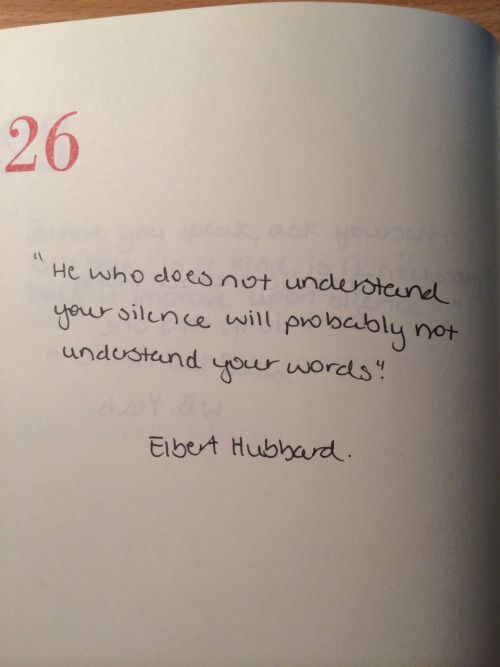 26
"He who does not understand
your silence will probably not
understand your words".
Elbert Hubbard.